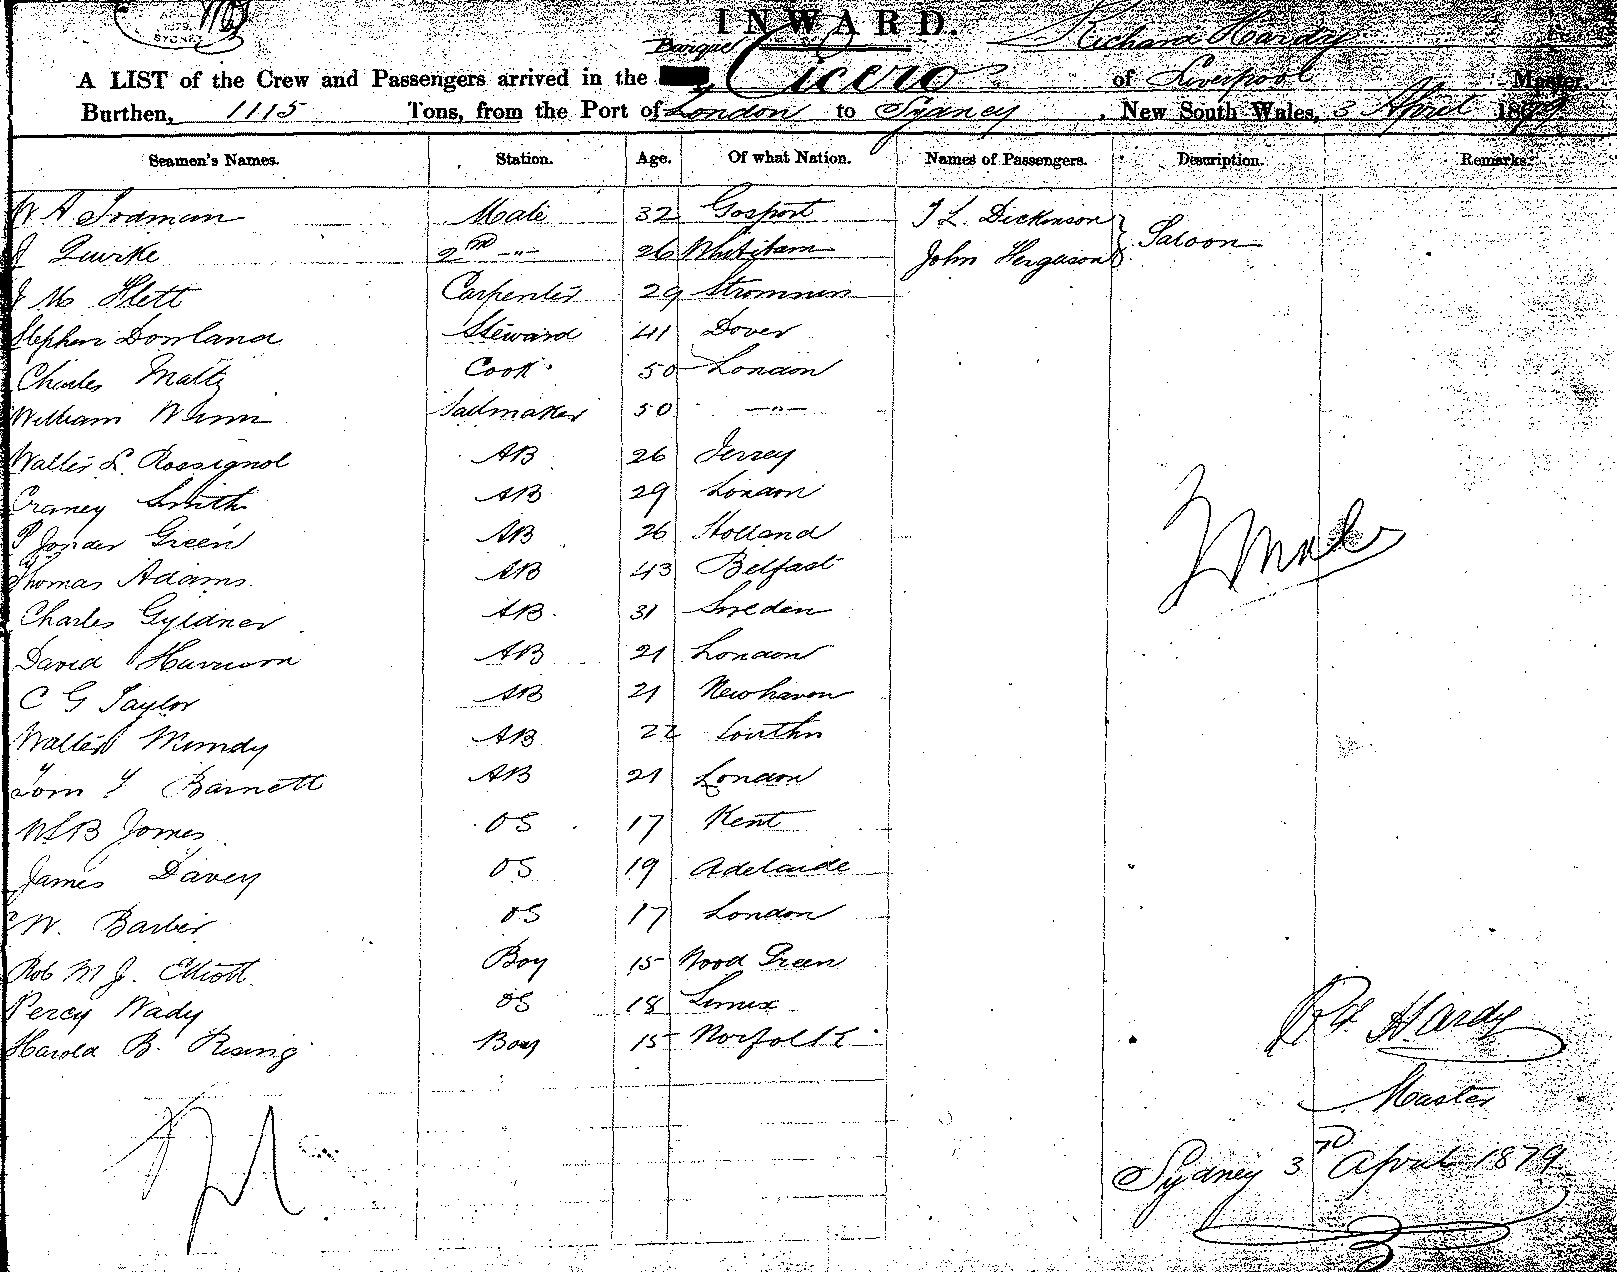 SYDNEY
INWARD.
Barque Richard Hardy
A LIST of the Crew and Passengers arrived in the Cicero of Liverpool Master,
Burthen, 1115 Tons, from the Port of London to Sydney, New South Wales, 3 April 1879
Seamen's Names. Station. Age. Of what Nation. Names of Passengers. Description. Remarks.
W A Mate 32 Gosport J L Dickinson Saloon
J Quirke 2nd -"- 26 John Ferguson
J Flett Carpenter 29 Stromness
Stephen Dowland Steward 41 Dover
Charles Maltz Cook 50 London
William Sailmaker 50 -"-
Walter L Rossignol AB 26 Jersey
Smith AB 29 London
Green AB 26 Holland
Thomas Adams AB 43 Belfast
Charles Gyldner AB 31 Sweden
David Harrison AB 21 London
C G Taylor AB 21 Newhaven
Walter Mundy AB 22
Tom Barnett AB 21 London
OS 17 Kent
James Davey OS 19 Adelaide
W. Barber OS 17 London
Rob M J. Elliott Boy 15 Wood Green
Percy Wady OS 18
Harold B. Rising Boy 15 Norfolk
Hardy
Master
Sydney 3rd April 1879